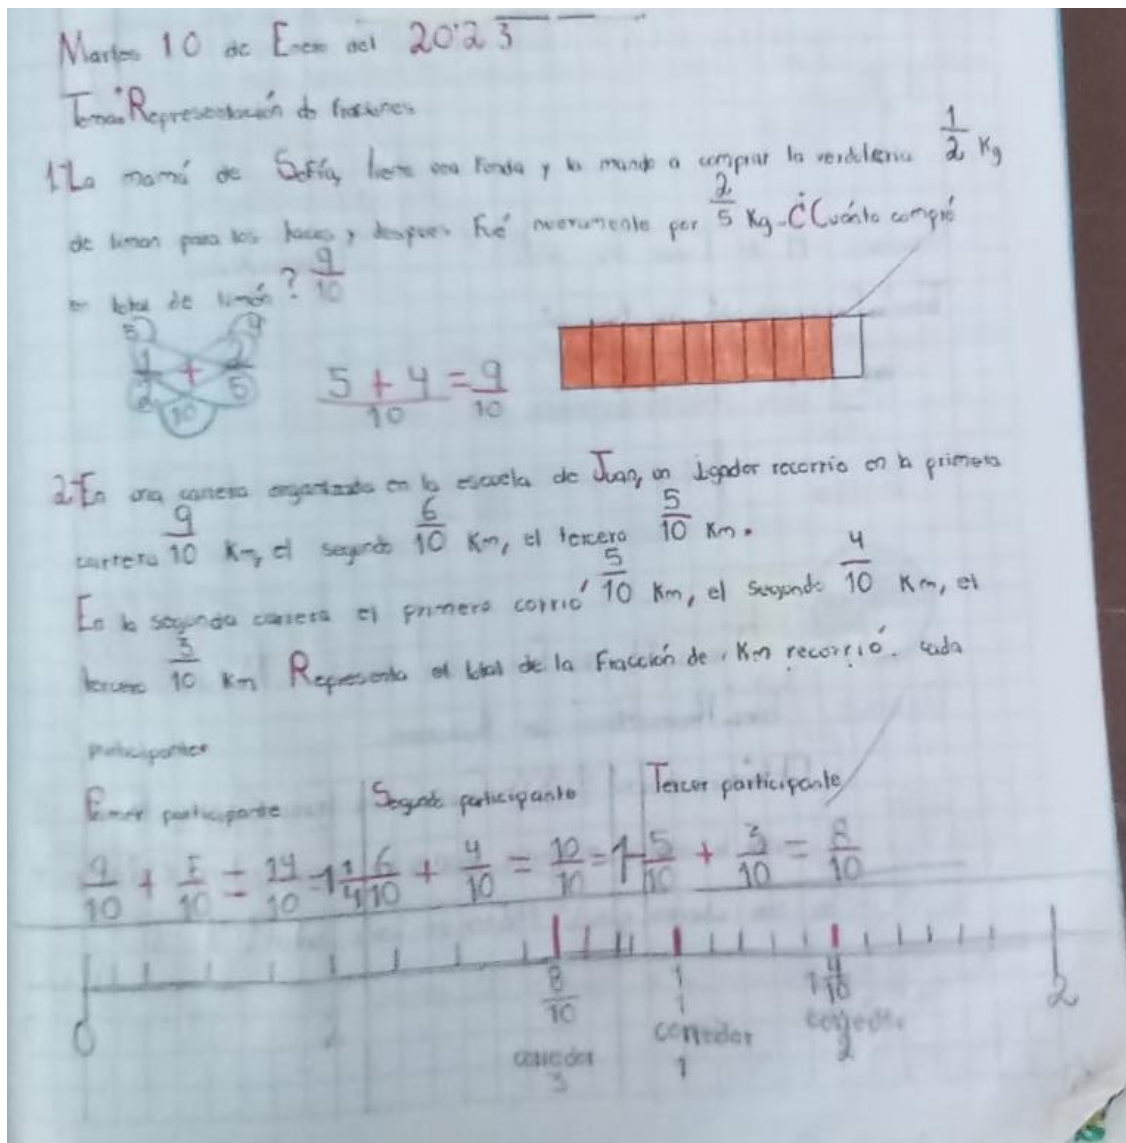 Martes 10 de Enero del 2023
Tema: Representación de fracciones
1. La mamá de Sofía, tiene una fonda y la mando a comprar la verduleria 1/2 Kg
de limon para los tacos y despues Fué nuevamente por 2/5 Kg. ¿Cuánto compró
en total de limón? 9/10
5 4
1/2 + 2/5
10
5 + 4/10 = 9/10
2. En una carrera organizada en la escuela de Juan, un jugador recorrio en la primera
carrera 9/10 Km, el segundo 6/10 Km, el tercero 5/10 Km.
En la segunda carrera el primero corrió 5/10 Km, el segundo 4/10 Km, el
tercero 3/10 Km Representa el total de la Fracción de Km recorrió cada
participante
Primer participante Segundo participante Tercer participante
9/10 + 5/10 = 14/10 6/10 + 4/10 = 10/10 = 1 5/10 + 3/10 = 8/10
0 8/10 1 1 4/10 2
corredor 3 corredor 1 2